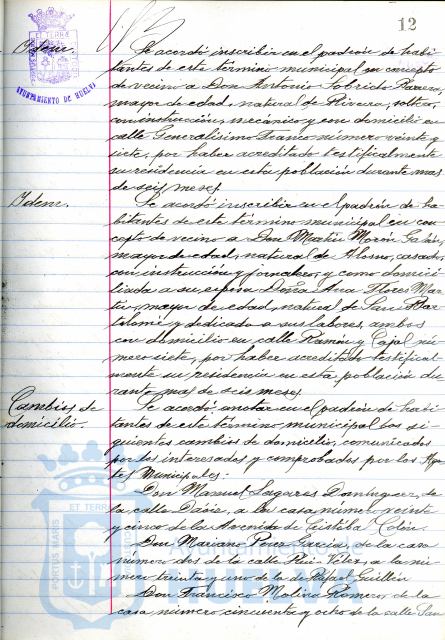 12
Idem.
Se acordó inscribir en el padrón de habi-
tantes de este término municipal en concepto
de vecino a Don Antonio Sobrido
mayor de edad, natural de Riveira, soltero,
con instrucción, mecánico y con domicilio en
calle Generalísimo Franco número veinte y
siete, por haber acreditado testificalmente
su residencia en esta población durante mas
de seis meses.
Idem.
Se acordó inscribir en el padrón de ha-
bitantes de este término municipal en con-
cepto de vecino a Don Martín Morón
mayor de edad, natural de Alosno, casado,
con instrucción y jornalero, y como domici-
liada a su esposa Doña Ana Flores Mar-
tín, mayor de edad, natural de San Bar-
tolomé y dedicada a sus labores, ambos
con domicilio en calle Ramón y Cajal nú-
mero siete, por haber acreditado testifical-
mente su residencia en esta población du-
rante mas de seis meses.
Cambios de
domicilio.
Se acordó anotar en el padrón de habi-
tantes de este término municipal los si-
guientes cambios de domicilio, comunicados
por los interesados y comprobados por los Agen-
tes Municipales:
Don Manuel Sagares Domínguez, de
la calle a la casa número veinte
y cinco de la Avenida de Cristóbal Colón.
Don Mariano Ponce García, de la casa
número dos de la calle Ruiz Vélez, a la nú-
mero treinta y uno de la de Rafael Guillén
Don Francisco Molina Romero, de la
casa número cincuenta y ocho de la calle San
AYUNTAMIENTO DE HUELVA
PORTUS MARIS ET TERRAE
Ayuntamiento de
HUELVA